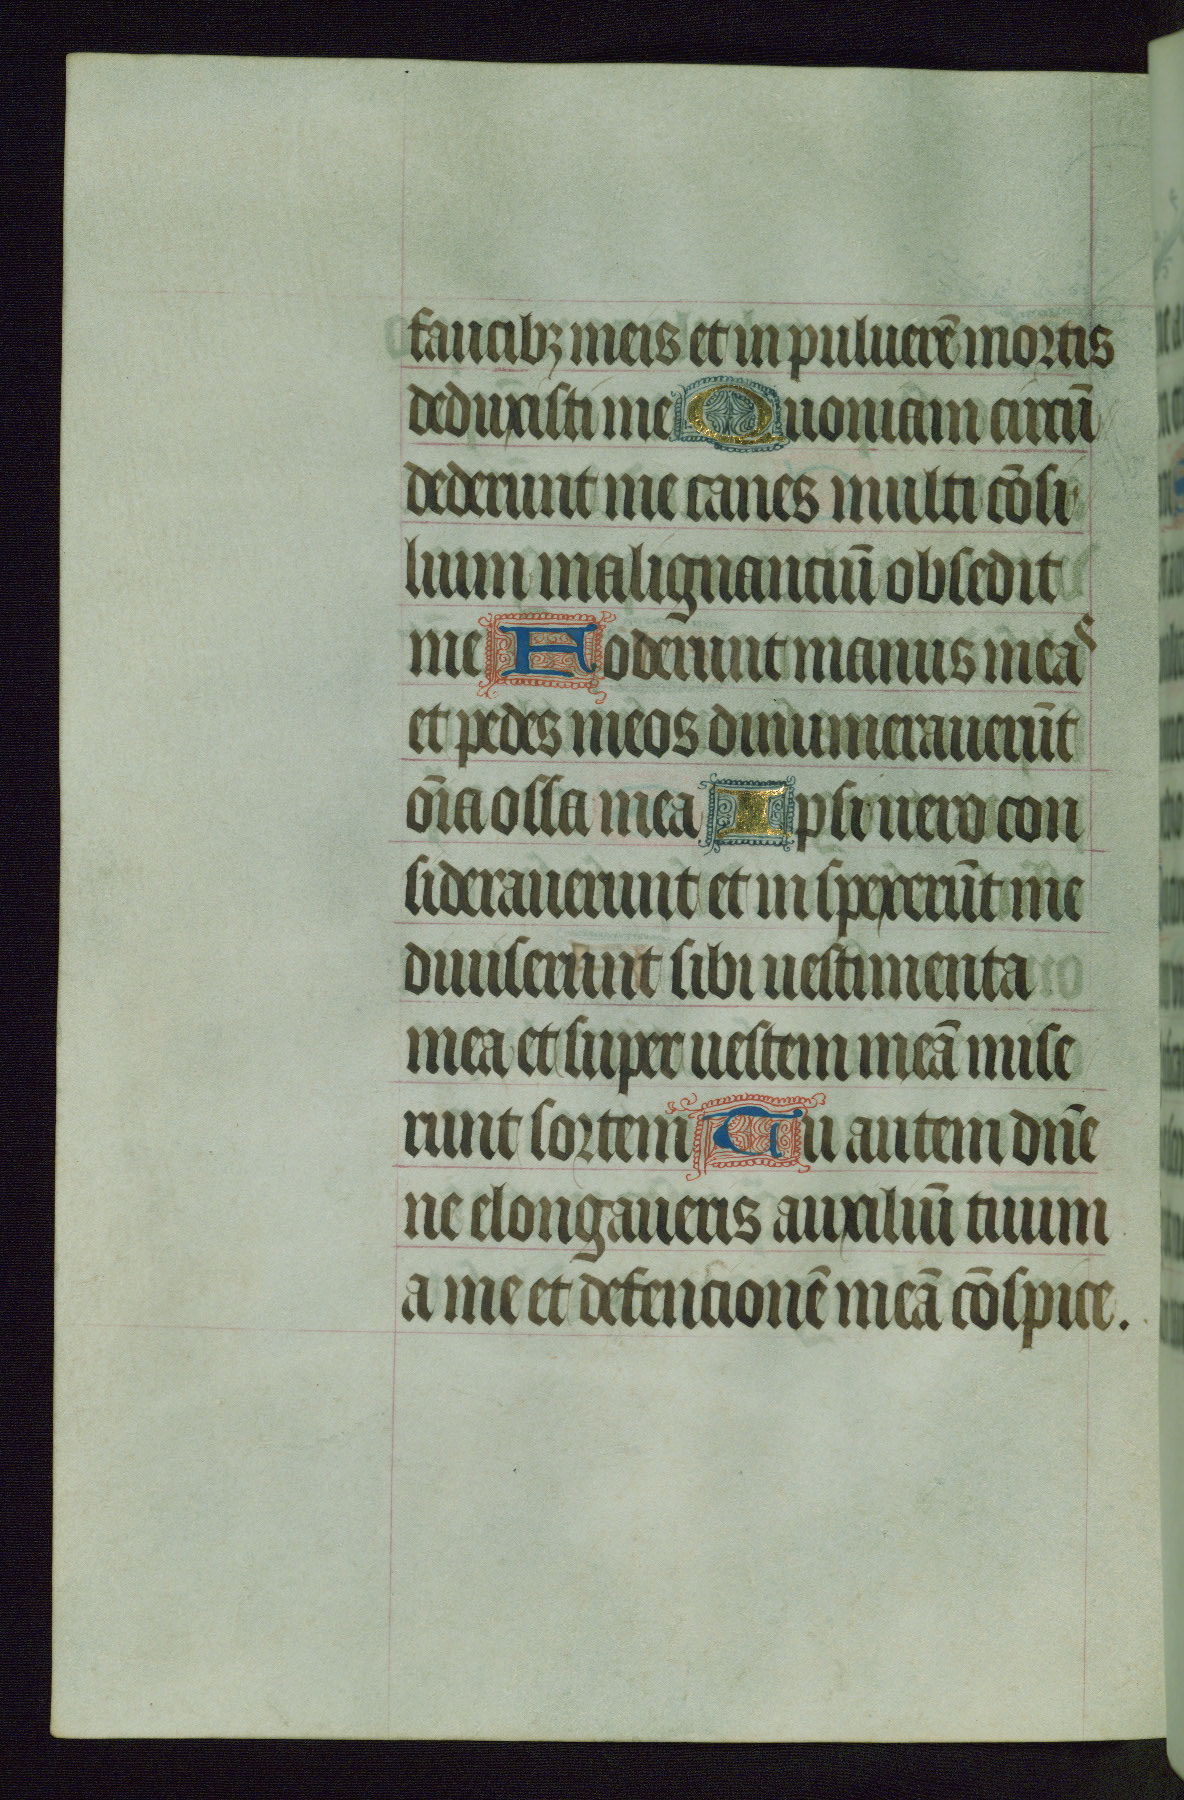 faucibꝫ meis et in puluerē mortis
deduxisti me Quoniam circū
dederunt me canes multi cōsi
lium malignantiū obsedit
me Foderunt manus meas
et pedes meos dinumerauerūt
oīa ossa mea Ipsi uero con
siderauerunt et in spexerūt me
diuiserunt sibi uestimenta
mea et super uestem meā mise
runt sortem Tu autem dñe
ne elongaueris auxiliū tuum
a me et defencionē meā cōspice.